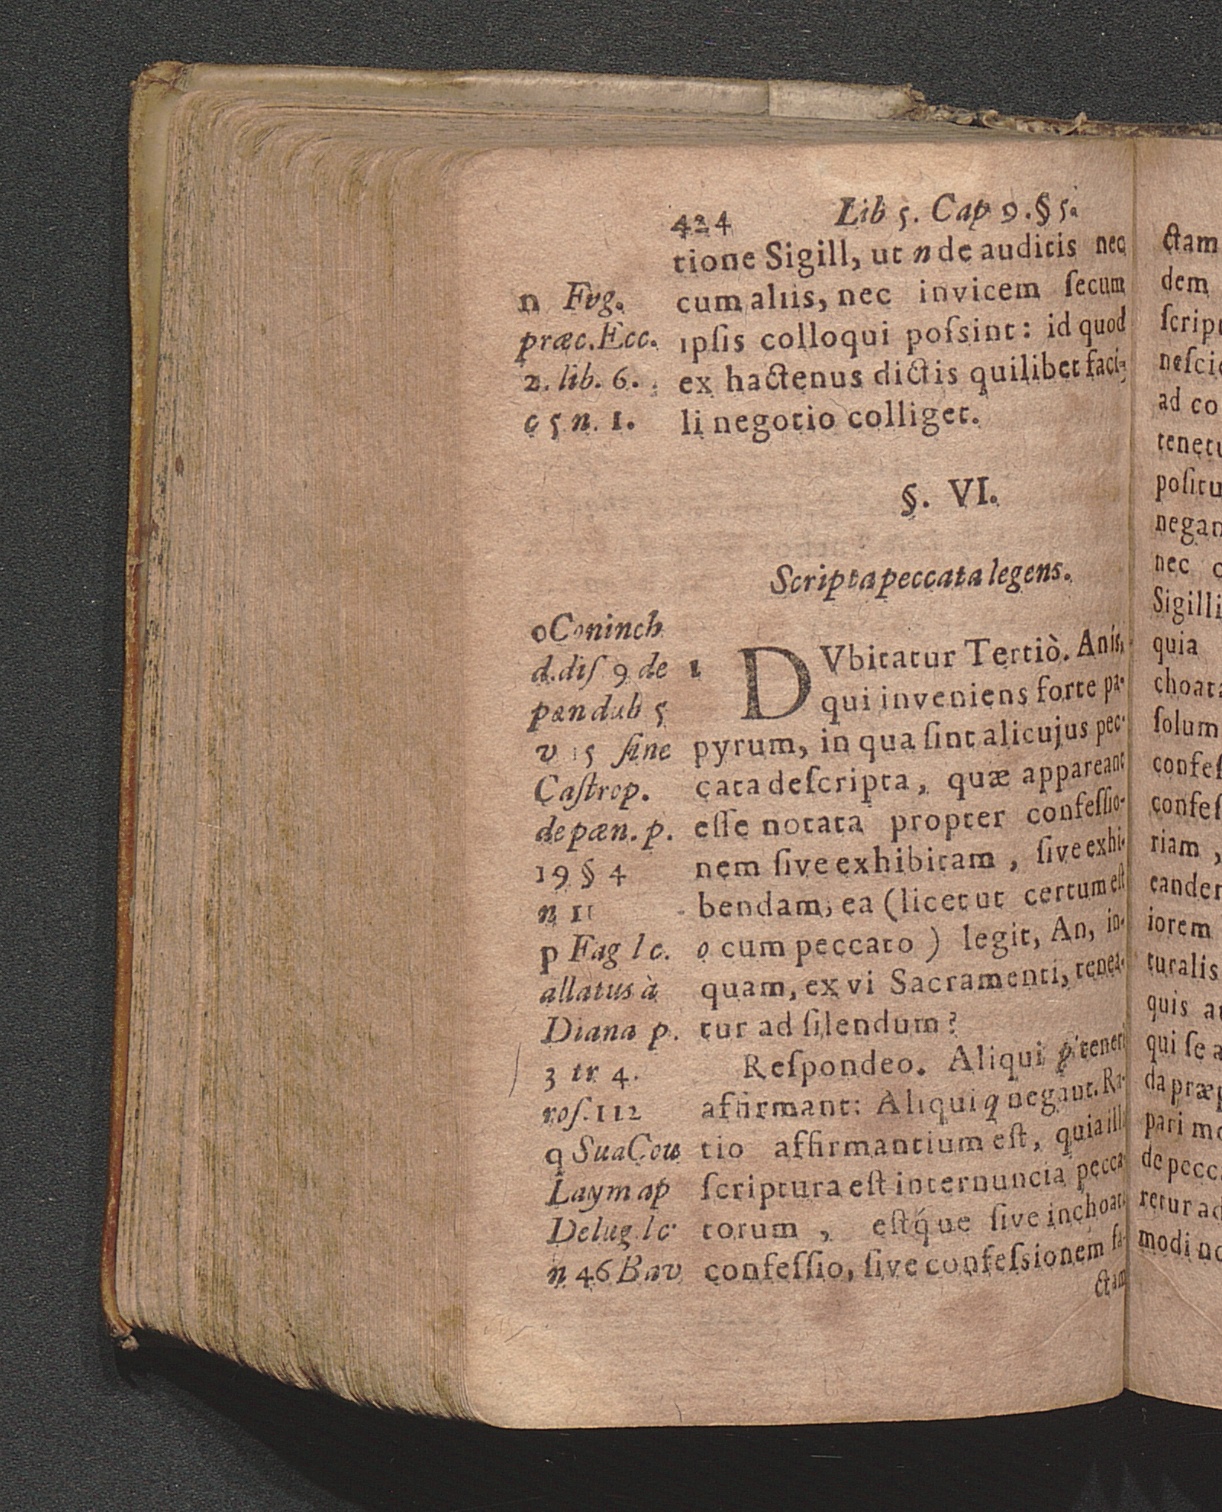 424 Lib 5. Cap 9. § 5.
tione Sigill, ut n de auditis nec
cum aliis, nec invicem ſecum
ipſis colloqui poſsint: id quod
ex hactenus dictis quilibet faci-
li negotio colliget.
n Fvg.
præc. Ecc.
2. lib. 6.
c 5 n. 1.
§. VI.
Scripta peccata legens.
1 DVbitatur Tertiò. An is,
qui inveniens forte pa-
pyrum, in qua ſint alicujus pec-
cata deſcripta, quæ appareant
eſſe notata propter confeſſio-
nem ſive exhibitam, ſive exhi-
bendam, ea (licet ut certum eſt
o cum peccato) legit, An, in-
quam, ex vi Sacramenti, tenea-
tur ad ſilendum?
Reſpondeo. Aliqui p teneri
affirmant: Aliqui q negant. Ra-
tio affirmantium eſt, quia illa
ſcriptura eſt internuncia pecca-
torum, eſtq́ue ſive inchoat.
confeſſio, ſive confeſsionem fa-
ctam
oConinch
d. diſ 9 de
pæn dub 5
v 15 ſine
Caſtrop.
de pæn. p.
19 § 4
n 11
p Fag l c.
allatus à
Diana p.
3 tr 4.
roſ. 112
q Sua Cou
Laym ap
Delug lc
n 46 Bav
ctam
dem
ſcrip
neſci
ad co
tenet
poſitu
negan
nec
Sigilli
quia
choat
ſolum
confeſ
confeſ
riam,
eander
iorem
turalis
quis a
qui ſe a
da præp
pari mo
de pecc
retur ac
modi no